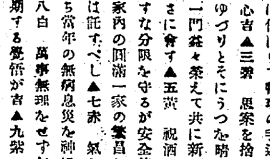 心吉▲三碧　思案を捨
ゆづりとそにうつを晴
一門益々榮えて共に新
さに會す▲五黄　祝酒
すな分限を守るが安全
家内の圓滿一家の繁昌
は託すべし▲七赤　氣
ち當年の無病息災を神
八白　萬事無理をせず
期する覺悟が吉▲九紫